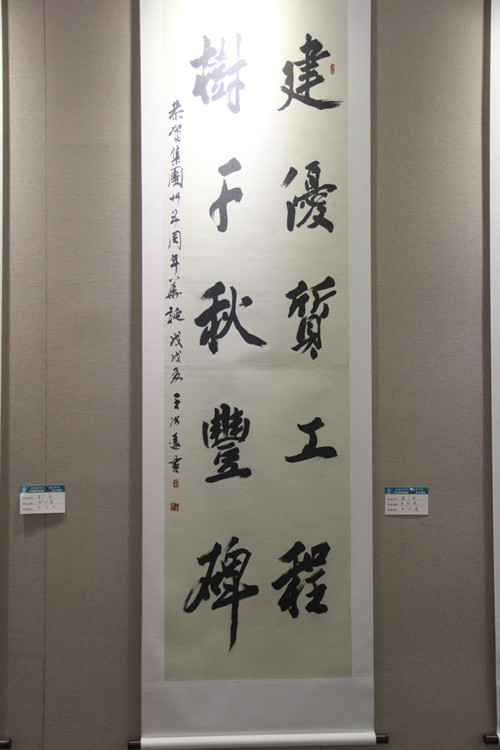 建優質工程
樹千秋豐碑
恭贺集團卅五周年華誕 戊戌夏
書